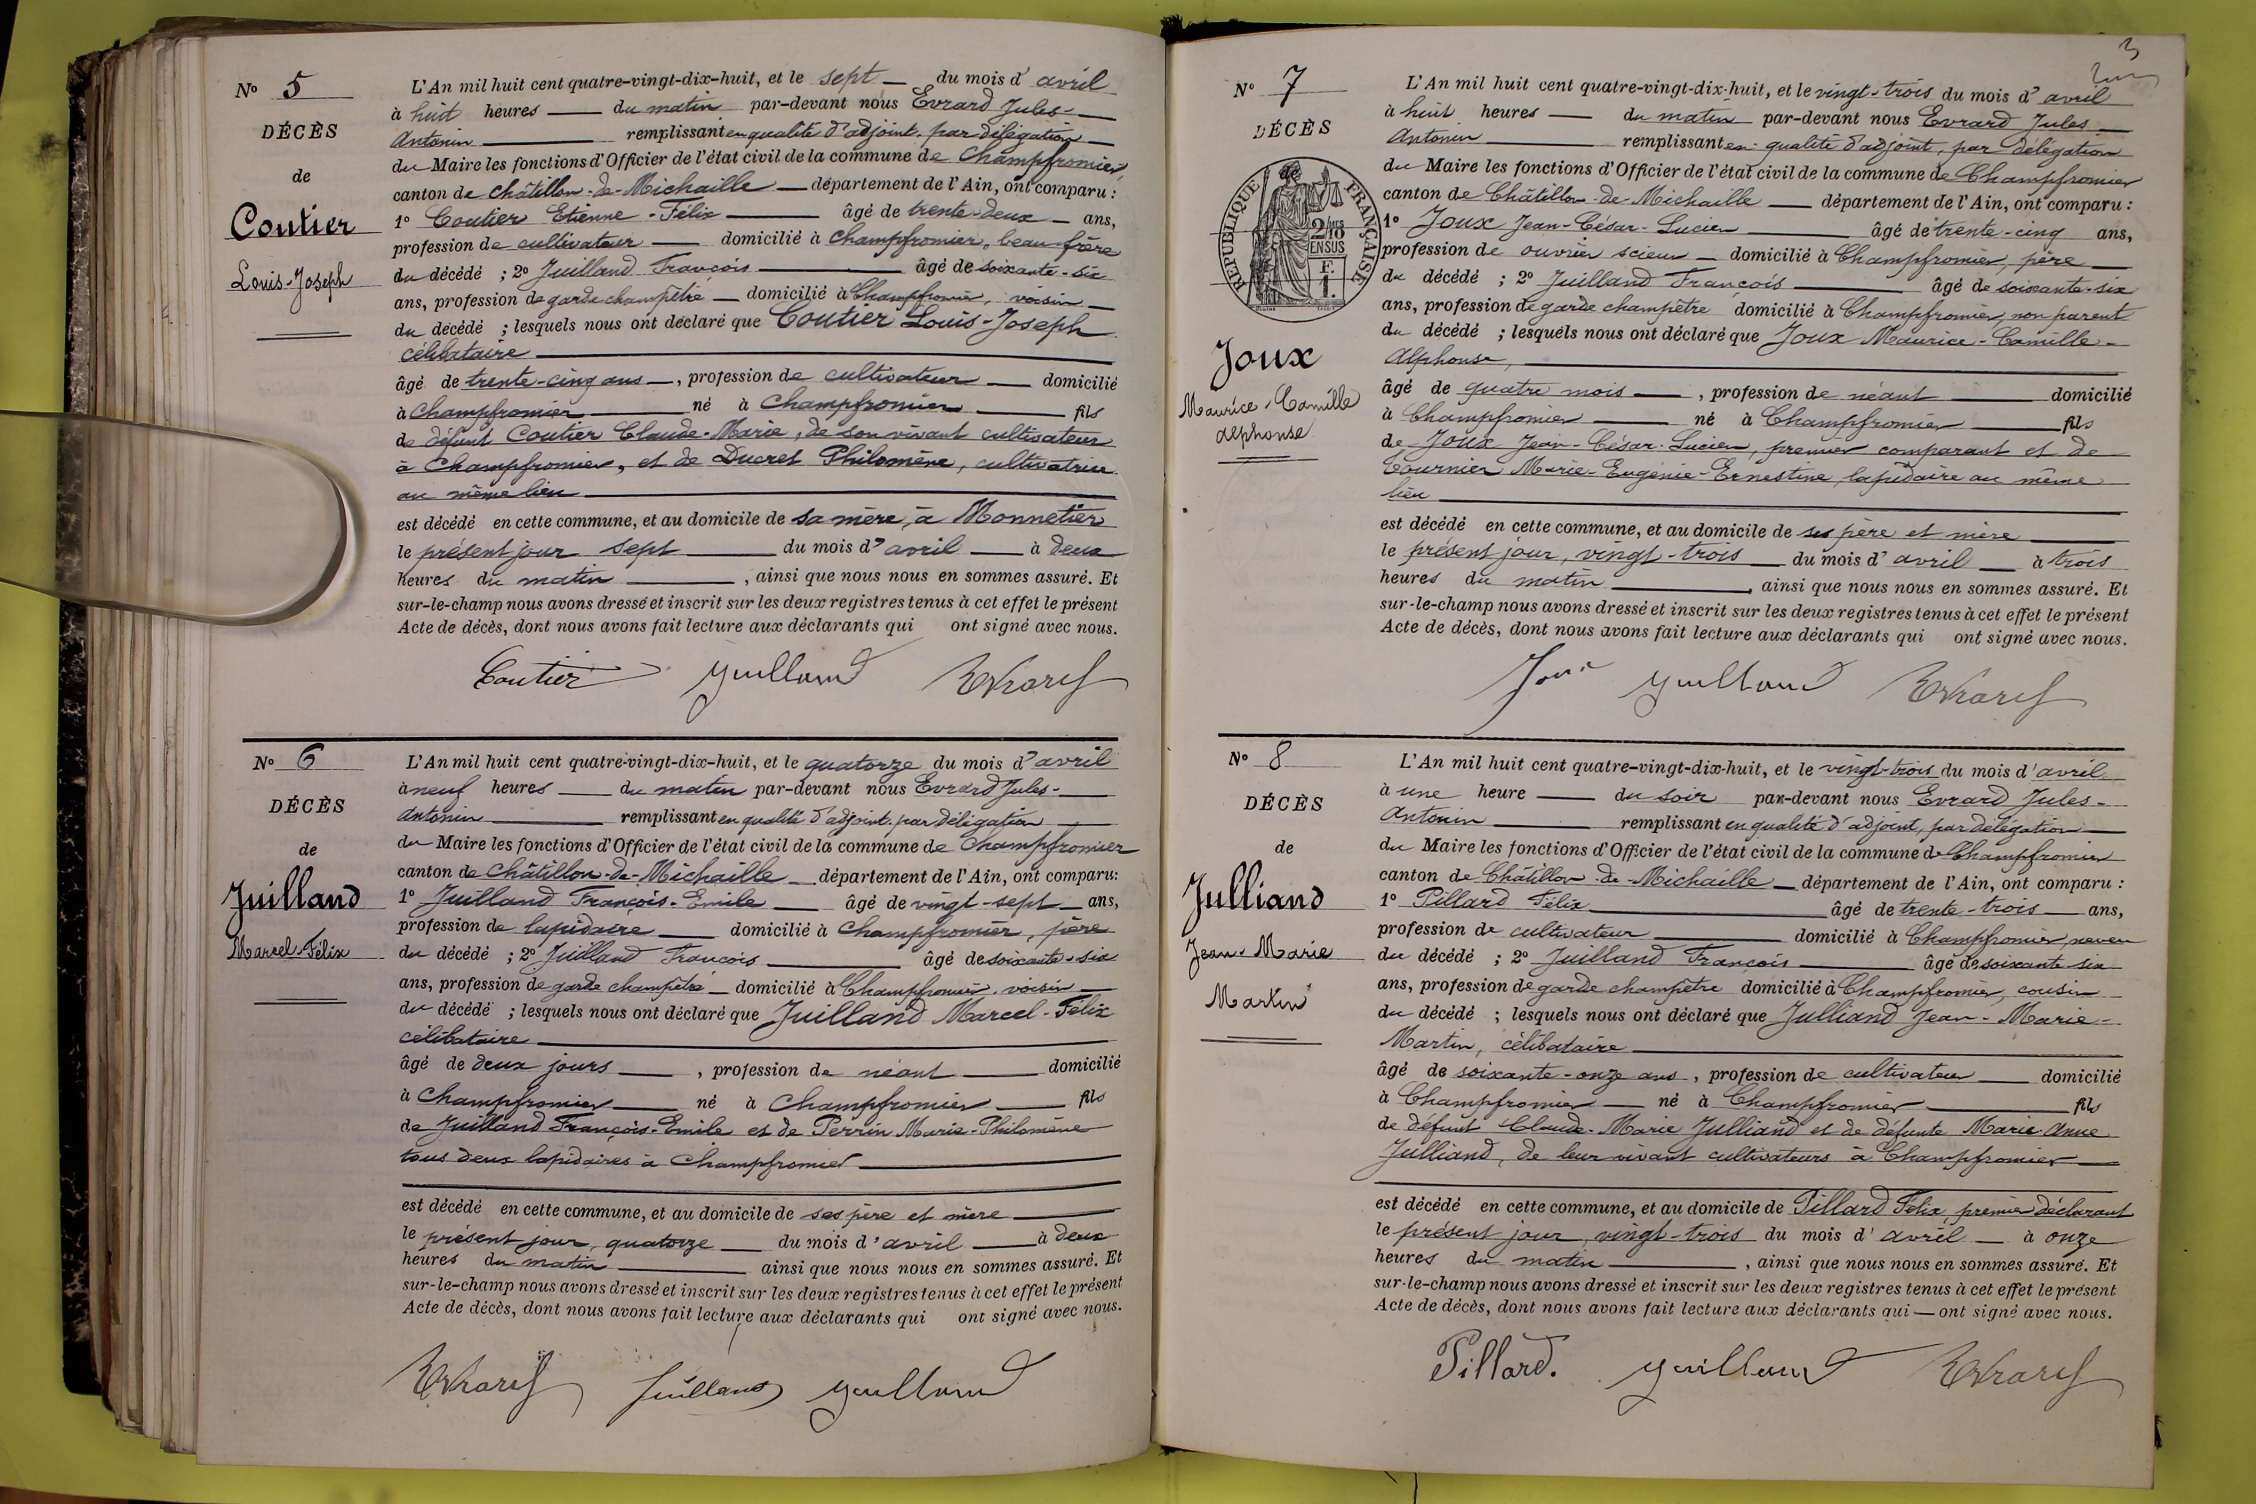 Nº 5
DÉCÈS
de
Coutier
Louis-Joseph
L'An mil huit cent quatre-vingt-dix-huit, et le sept du mois d'avril
à huit heures du matin par-devant nous Evrard Jules-
Antonin remplissant en qualité d'adjoint par délégation
du Maire les fonctions d'Officier de l'état civil de la commune de Champfromier,
canton de Châtillon-de-Michaille département de l'Ain, ont comparu :
1º Coutier Etienne-Félix âgé de trente-deux ans,
profession de cultivateur domicilié à Champfromier, beau-frère
du décédé ; 2º Juilland François âgé de soixante-six
ans, profession de garde champêtre domicilié à Champfromier, voisin
du décédé ; lesquels nous ont déclaré que Coutier Louis-Joseph
célibataire
âgé de trente-cinq ans, profession de cultivateur domicilié
à Champfromier né à Champfromier fils
de défunt Coutier Claude-Marie, de son vivant cultivateur
à Champfromier, et de Ducret Philomène, cultivatrice
au même lieu
est décédé en cette commune, et au domicile de sa mère, à Monnetier
le présent jour sept du mois d'avril à deux
heures du matin, ainsi que nous nous en sommes assuré. Et
sur-le-champ nous avons dressé et inscrit sur les deux registres tenus à cet effet le présent
Acte de décès, dont nous avons fait lecture aux déclarants qui ont signé avec nous.
Coutier Juilland Evrard
Nº 6
DÉCÈS
de
Juilland
Marcel-Félix
L'An mil huit cent quatre-vingt-dix-huit, et le quatorze du mois d'avril
à neuf heures du matin par-devant nous Evrard Jules-
Antonin remplissant en qualité d'adjoint par délégation
du Maire les fonctions d'Officier de l'état civil de la commune de Champfromier
canton de Châtillon-de-Michaille département de l'Ain, ont comparu :
1º Juilland François-Emile âgé de vingt-sept ans,
profession de lapidaire domicilié à Champfromier, père
du décédé ; 2º Juilland François âgé de soixante-six
ans, profession de garde champêtre domicilié à Champfromier, voisin
du décédé ; lesquels nous ont déclaré que Juilland Marcel-Félix
célibataire
âgé de deux jours, profession de néant domicilié
à Champfromier né à Champfromier fils
de Juilland François-Emile et de Perrin Marie-Philomène
tous deux lapidaires à Champfromier
est décédé en cette commune, et au domicile de ses père et mère
le présent jour, quatorze du mois d'avril à deux
heures du matin ainsi que nous nous en sommes assuré. Et
sur-le-champ nous avons dressé et inscrit sur les deux registres tenus à cet effet le présent
Acte de décès, dont nous avons fait lecture aux déclarants qui ont signé avec nous.
Evrard Juilland Juilland
3
Nº 7
DÉCÈS
RÉPUBLIQUE FRANÇAISE
2/10
EN SUS
F.
1.
Joux
Maurice-Camille
Alphonse
L'An mil huit cent quatre-vingt-dix-huit, et le vingt-trois du mois d'avril
à huit heures du matin par-devant nous Evrard Jules
Antonin remplissant en qualité d'adjoint, par délégation
du Maire les fonctions d'Officier de l'état civil de la commune de Champfromier
canton de Châtillon-de-Michaille département de l'Ain, ont comparu :
1º Joux Jean-César-Lucien âgé de trente-cinq ans,
profession de ouvrier scieur domicilié à Champfromier, père
du décédé ; 2º Juilland François âgé de soixante-six
ans, profession de garde champêtre domicilié à Champfromier, non parent
du décédé ; lesquels nous ont déclaré que Joux Maurice-Camille-
Alphonse,
âgé de quatre mois, profession de néant domicilié
à Champfromier né à Champfromier fils
de Joux Jean-César-Lucien, premier comparant et de
Tournier Marie-Eugénie-Ernestine lapidaire au même
lieu
est décédé en cette commune, et au domicile de ses père et mère
le présent jour, vingt-trois du mois d'avril à trois
heures du matin, ainsi que nous nous en sommes assuré. Et
sur-le-champ nous avons dressé et inscrit sur les deux registres tenus à cet effet le présent
Acte de décès, dont nous avons fait lecture aux déclarants qui ont signé avec nous.
Joux Juilland Evrard
Nº 8
DÉCÈS
de
Julliand
Jean-Marie
Martin
L'An mil huit cent quatre-vingt-dix-huit, et le vingt-trois du mois d'avril
à une heure du soir par-devant nous Evrard Jules-
Antonin remplissant en qualité d'adjoint, par délégation
du Maire les fonctions d'Officier de l'état civil de la commune de Champfromier
canton de Châtillon-de-Michaille département de l'Ain, ont comparu :
1º Pillard Félix âgé de trente-trois ans,
profession de cultivateur domicilié à Champfromier, neveu
du décédé ; 2º Juilland François âgé de soixante-six
ans, profession de garde champêtre domicilié à Champfromier, cousin
du décédé ; lesquels nous ont déclaré que Julliand Jean-Marie-
Martin, célibataire
âgé de soixante-onze ans, profession de cultivateur domicilié
à Champfromier né à Champfromier fils
de défunt Claude-Marie Julliand et de défunte Marie-Anne
Julliand, de leur vivant cultivateurs à Champfromier
est décédé en cette commune, et au domicile de Pillard Félix, premier déclarant
le présent jour, vingt-trois du mois d'avril à onze
heures du matin, ainsi que nous nous en sommes assuré. Et
sur-le-champ nous avons dressé et inscrit sur les deux registres tenus à cet effet le présent
Acte de décès, dont nous avons fait lecture aux déclarants qui — ont signé avec nous.
Pillard. Juilland Evrard